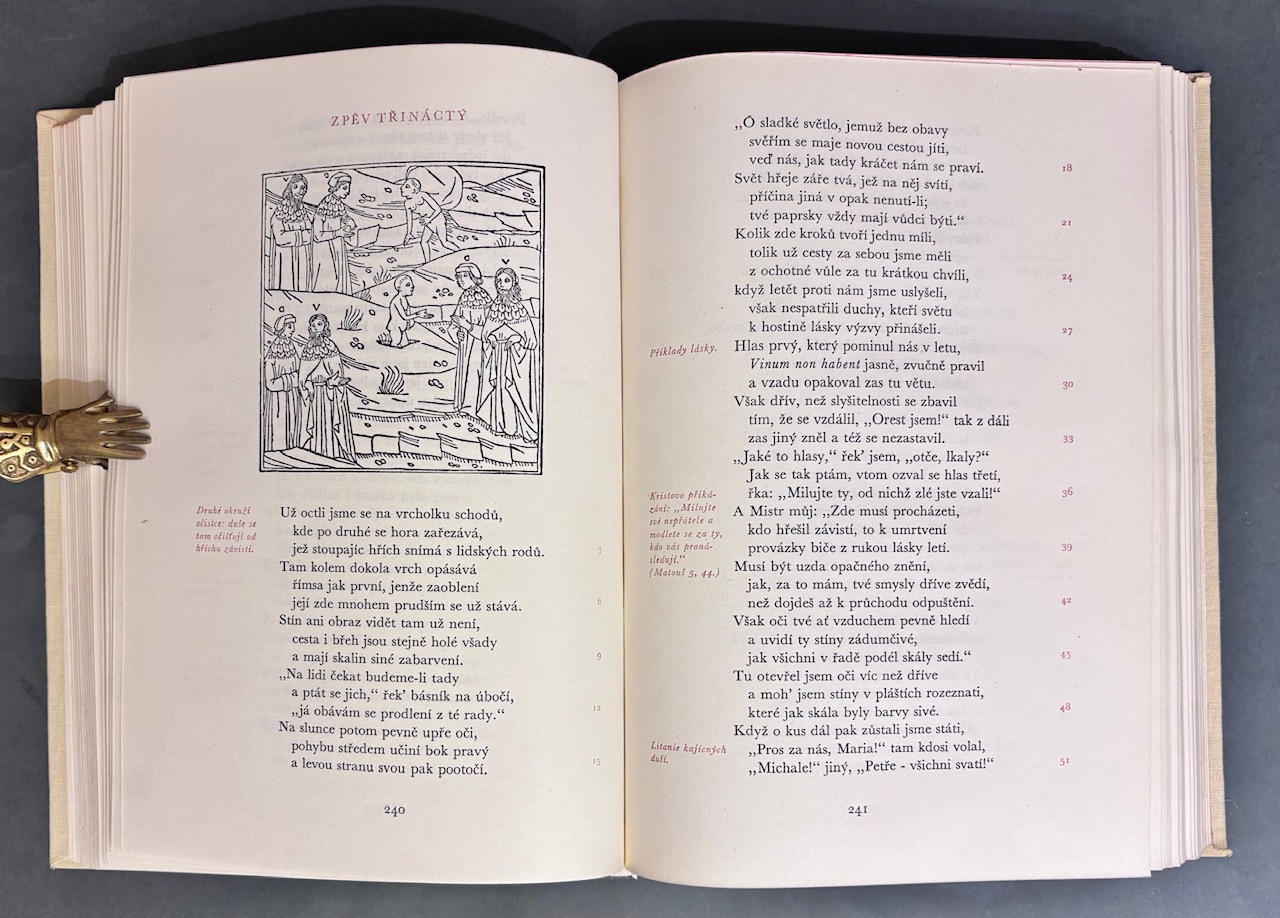 ZPĚV TŘINÁCTÝ
Druhé okruží
očistce: duše se
tam očišťují od
hříchu závisti.
Už octli jsme se na vrcholku schodů,
kde po druhé se hora zařezává,
jež stoupajíc hřích snímá s lidských rodů.
3
Tam kolem dokola vrch opásává
římsa jak první, jenže zaoblení
její zde mnohem prudším se už stává.
6
Stín ani obraz vidět tam už není,
cesta i břeh jsou stejně holé všady
a mají skalin siné zabarvení.
9
„Na lidi čekat budeme-li tady
a ptát se jich,“ řek’ básník na úbočí,
„já obávám se prodlení z té rady.“
12
Na slunce potom pevně upře oči,
pohybu středem učiní bok pravý
a levou stranu svou pak pootočí.
15
240
„Ó sladké světlo, jemuž bez obavy
svěřím se maje novou cestou jíti,
veď nás, jak tady kráčet nám se praví.
18
Svět hřeje záře tvá, jež na něj svítí,
příčina jiná v opak nenutí-li;
tvé paprsky vždy mají vůdci býti.“
21
Kolik zde kroků tvoří jednu míli,
tolik už cesty za sebou jsme měli
z ochotné vůle za tu krátkou chvíli,
24
když letět proti nám jsme uslyšeli,
však nespatřili duchy, kteří světu
k hostině lásky výzvy přinášeli.
27
Příklady lásky.
Hlas prvý, který pominul nás v letu,
Vinum non habent jasně, zvučně pravil
a vzadu opakoval zas tu větu.
30
Však dřív, než slyšitelnosti se zbavil
tím, že se vzdálil, „Orest jsem!“ tak z dáli
zas jiný zněl a též se nezastavil.
33
„Jaké to hlasy,“ řek’ jsem, „otče, lkaly?“
Jak se tak ptám, vtom ozval se hlas třetí,
řka: „Milujte ty, od nichž zlé jste vzali!“
36
Kristovo přiká-
zání: „Milujte
své nepřátele a
modlete se za ty,
kdo vás proná-
sledují.“
(Matouš 5, 44.)
A Mistr můj: „Zde musí procházeti,
kdo hřešil závistí, to k umrtvení
provázky biče z rukou lásky letí.
39
Musí být uzda opačného znění,
jak, za to mám, tvé smysly dříve zvědí,
než dojdeš až k průchodu odpuštění.
42
Však oči tvé ať vzduchem pevně hledí
a uvidí ty stíny zádumčivé,
jak všichni v řadě podél skály sedí.“
45
Tu otevřel jsem oči víc než dříve
a moh’ jsem stíny v pláštích rozeznati,
které jak skála byly barvy sivé.
48
Když o kus dál pak zůstali jsme státi,
Litanie kajícných
duší.
„Pros za nás, Maria!“ tam kdosi volal,
„Michale!“ jiný, „Petře - všichni svatí!“
51
241